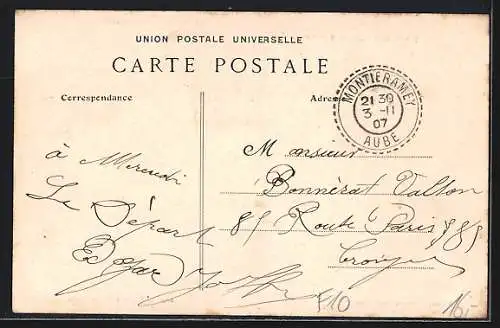 UNION POSTALE UNIVERSELLE
CARTE POSTALE
Correspondance
Adres
MONTIERAMEY
21 30
3 -11
07
AUBE
à Mercredi
Le Départ
Monsieur
Bonnérat Valton
85 Route Paris 85
Troyes
510
16,-